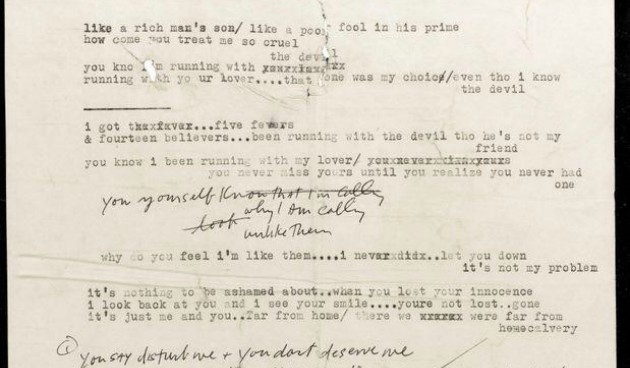 like a rich man's son/ like a poor fool in his prime
how come you treat me so cruel
the devil
you kno i'm running with
running with yo ur lover....that one was my choice/even tho i know
the devil
i got ...five fevers
& fourteen believers...been running with the devil tho he's not my
friend
you know i been running with my lover/
you never miss yours until you realize you never had
one
you yourself know that I'm calling
look why I Am calling
unlike Them
why do you feel i'm like them....i let you down
it's not my problem
it's nothing to be ashamed about..when you lost your innocence
i look back at you and i see your smile....youre not lost..gone
it's just me and you..far from home/ there we were far from
hemecalvery
① you say disturb me + you dont deserve me